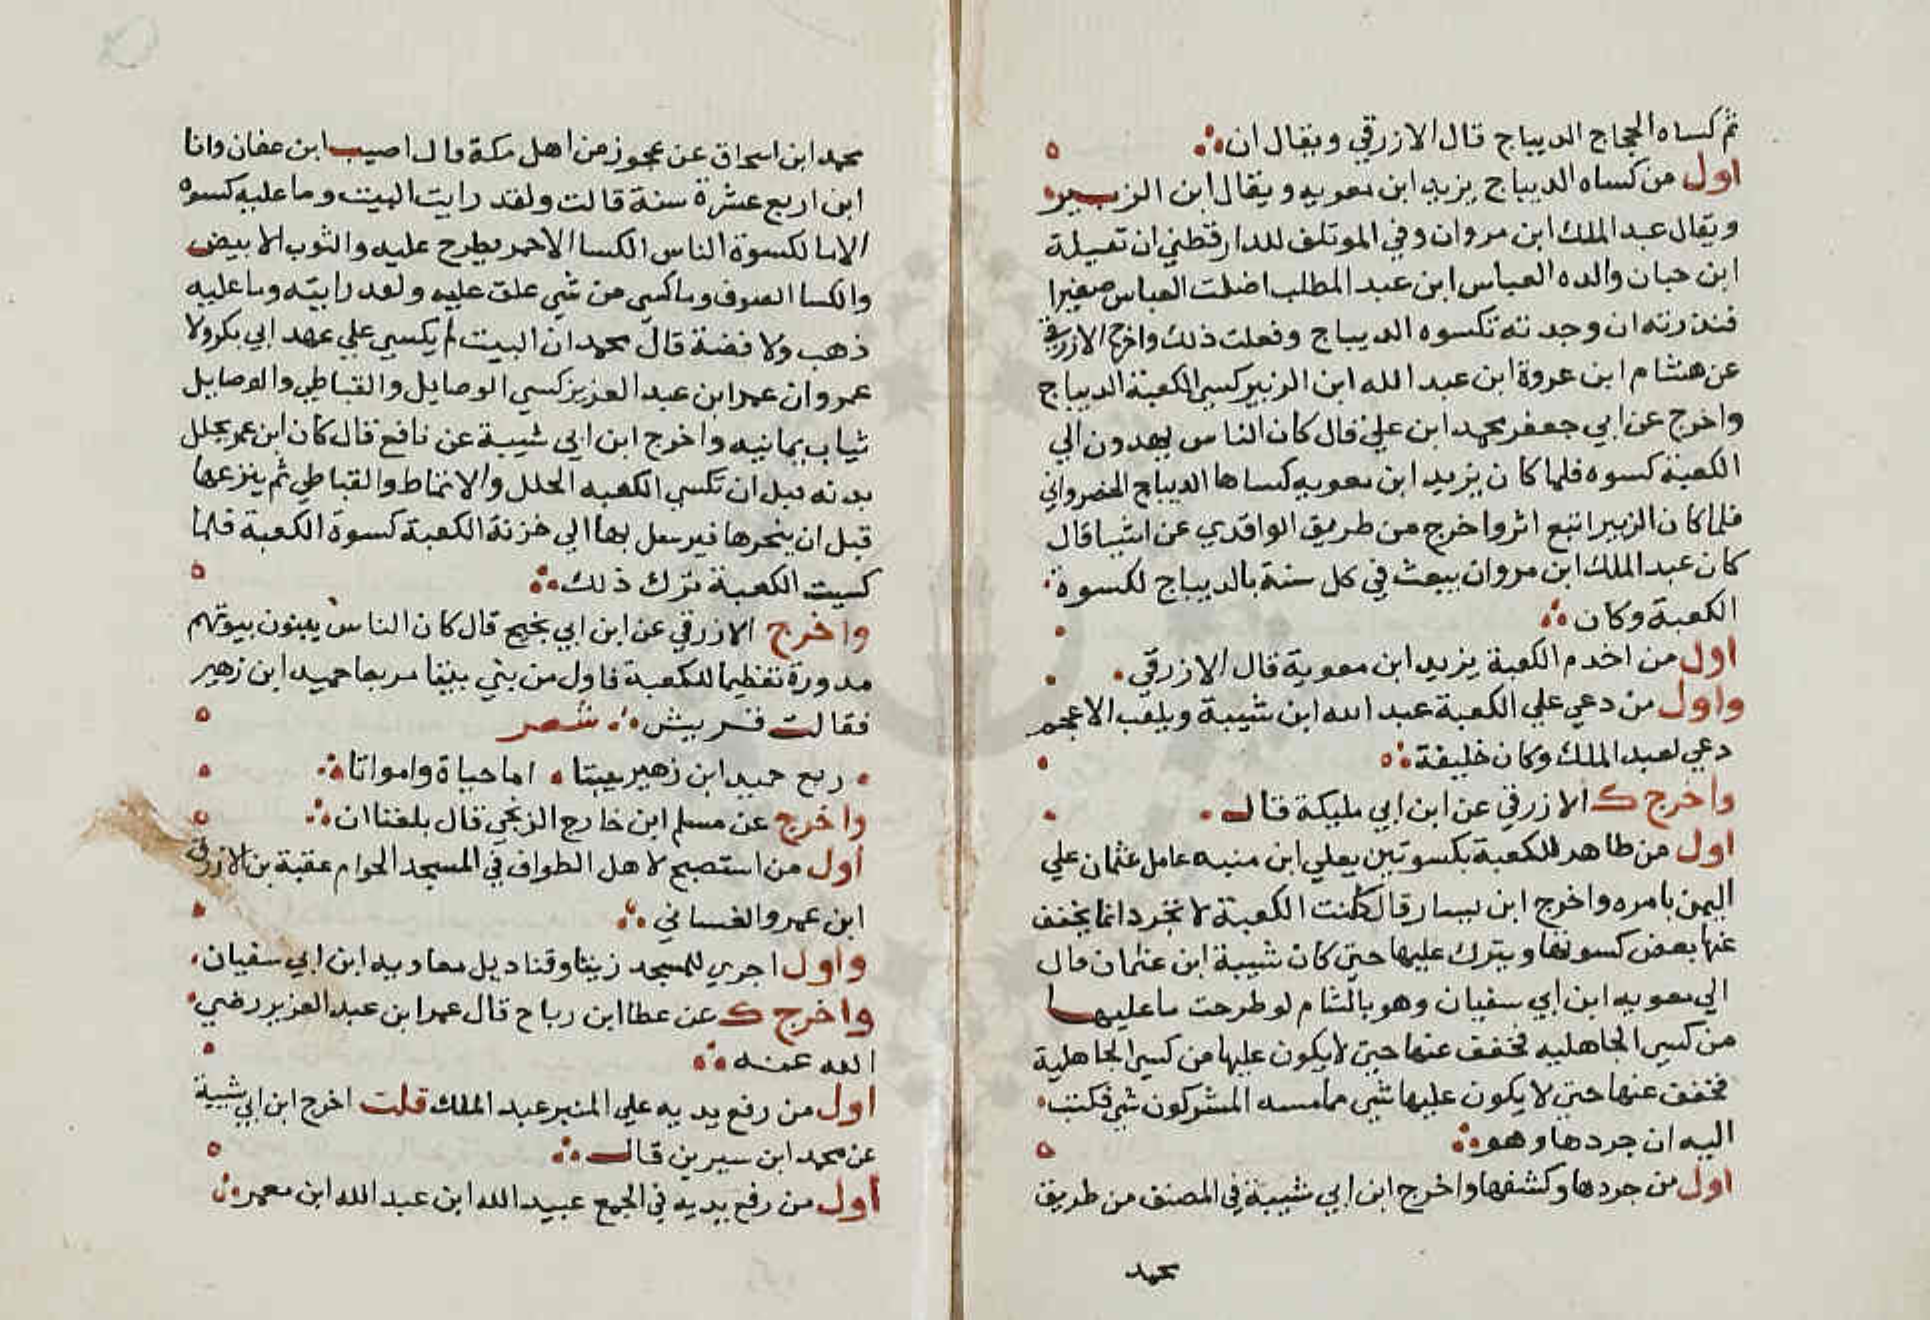 ثم كساه الحجاج الديباج قال الازرقي ويقال ان
اول من كساه الديباج يزيد ابن معويه ويقال ابن الزبير
ويقال عبد الملك ابن مروان وفي الموتلف للدارقطني ان تعيلة
ابن حبان والده العباس ابن عبد المطلب اضلت العباس صغيرا
فنذرته ان وجدته تكسوه الديباج وفعلت ذلك واخرج الازرقي
عن هشام ابن عروة ابن عبد الله ابن الزبير كسى الكعبة الديباج
واخرج عن ابي جعفر محمد ابن علي قال كان الناس يهدون الي
الكعبة كسوه فلما كان يزيد ابن معويه كساها الديباج الخسرواني
فلما كان الزبير اتبع اثر واخرج من طريق الواقدي عن اشيا قال
كان عبد الملك ابن مروان يبعث في كل سنة بالديباج لكسوة
الكعبة وكان
اول من اخدم الكعبة يزيد ابن معوية قال الازرقي
واول من دعي علي الكعبة عبد الله ابن شيبة ويلقب الاعجم
دعي لعبد الملك وكان خليفة
واخرج ك الازرقي عن ابن ابي مليكة قال
اول من طاهر للكعبة بكسوتين يعلي ابن منبه عامل عثمان علي
اليمن بامره واخرج ابن يسار قال كانت الكعبة لا تجرد انما يخفف
عنها بعض كسوتها ويترك عليها حتي كان شيبة ابن عثمان قال
الي معويه ابن ابي سفيان وهو بالشام لو طرحت ما عليها
من كسي الجاهليه فخفف عنها حتي لا يكون عليها من كسي الجاهلية
فخفف عنها حتي لا يكون عليها شي مما مسه المشركون شي فكتب
اليه ان جردها وهو
اول من جردها وكشفها واخرج ابن ابي شيبة في المصنف من طريق
محمد
محمد ابن اسحاق عن عجوز من اهل مكة قال اصيب ابن عفان وانا
ابن اربع عشرة سنة قالت ولقد رايت البيت وما عليه كسوه
الا ما لكسوة الناس الكسا الاحمر يطرح عليه والثوب الابيض
والكسا الصوف وما كسي من شي علق عليه ولقد رايته وما عليه
ذهب ولا فضة قال محمد ان البيت لم يكسي علي عهد ابي بكر ولا
عمر وان عمر ابن عبد العزيز كسي الوصايل والقباطي والوصايل
ثياب يمانيه واخرج ابن ابي شيبة عن نافع قال كان ابن عمر يجلل
بدنه قبل ان تكسي الكعبه الحلل والانماط والقباطي ثم ينزعها
قبل ان ينحرها فيرسل بها الي خزنة الكعبة كسوة الكعبة فلما
كسيت الكعبة ترك ذلك
واخرج الازرقي عن ابن ابي نجيح قال كان الناس يبنون بيوتهم
مدورة تعظيما للكعبة فاول من بني بيتا مربعا حميد ابن زهير
فقالت قريش شعر
ربع حميد ابن زهير بيتا اما حياة واما واتا
واخرج عن مسلم ابن خارج الزنجي قال بلغنا ان
اول من استصبح لاهل الطواف في المسجد الحرام عقبة بن الازرق
ابن عمرو الغساني
واول اجري للمسجد زيتا وقناديل معاويه ابن ابي سفيان
واخرج ك عن عطا ابن رباح قال عمر ابن عبد العزيز رضي
الله عنه
اول من رفع يديه علي المنبر عبد الملك قلت اخرج ابن ابي شيبة
عن محمد ابن سيرين قال
اول من رفع يديه في الجمع عبيد الله ابن عبد الله ابن معمر